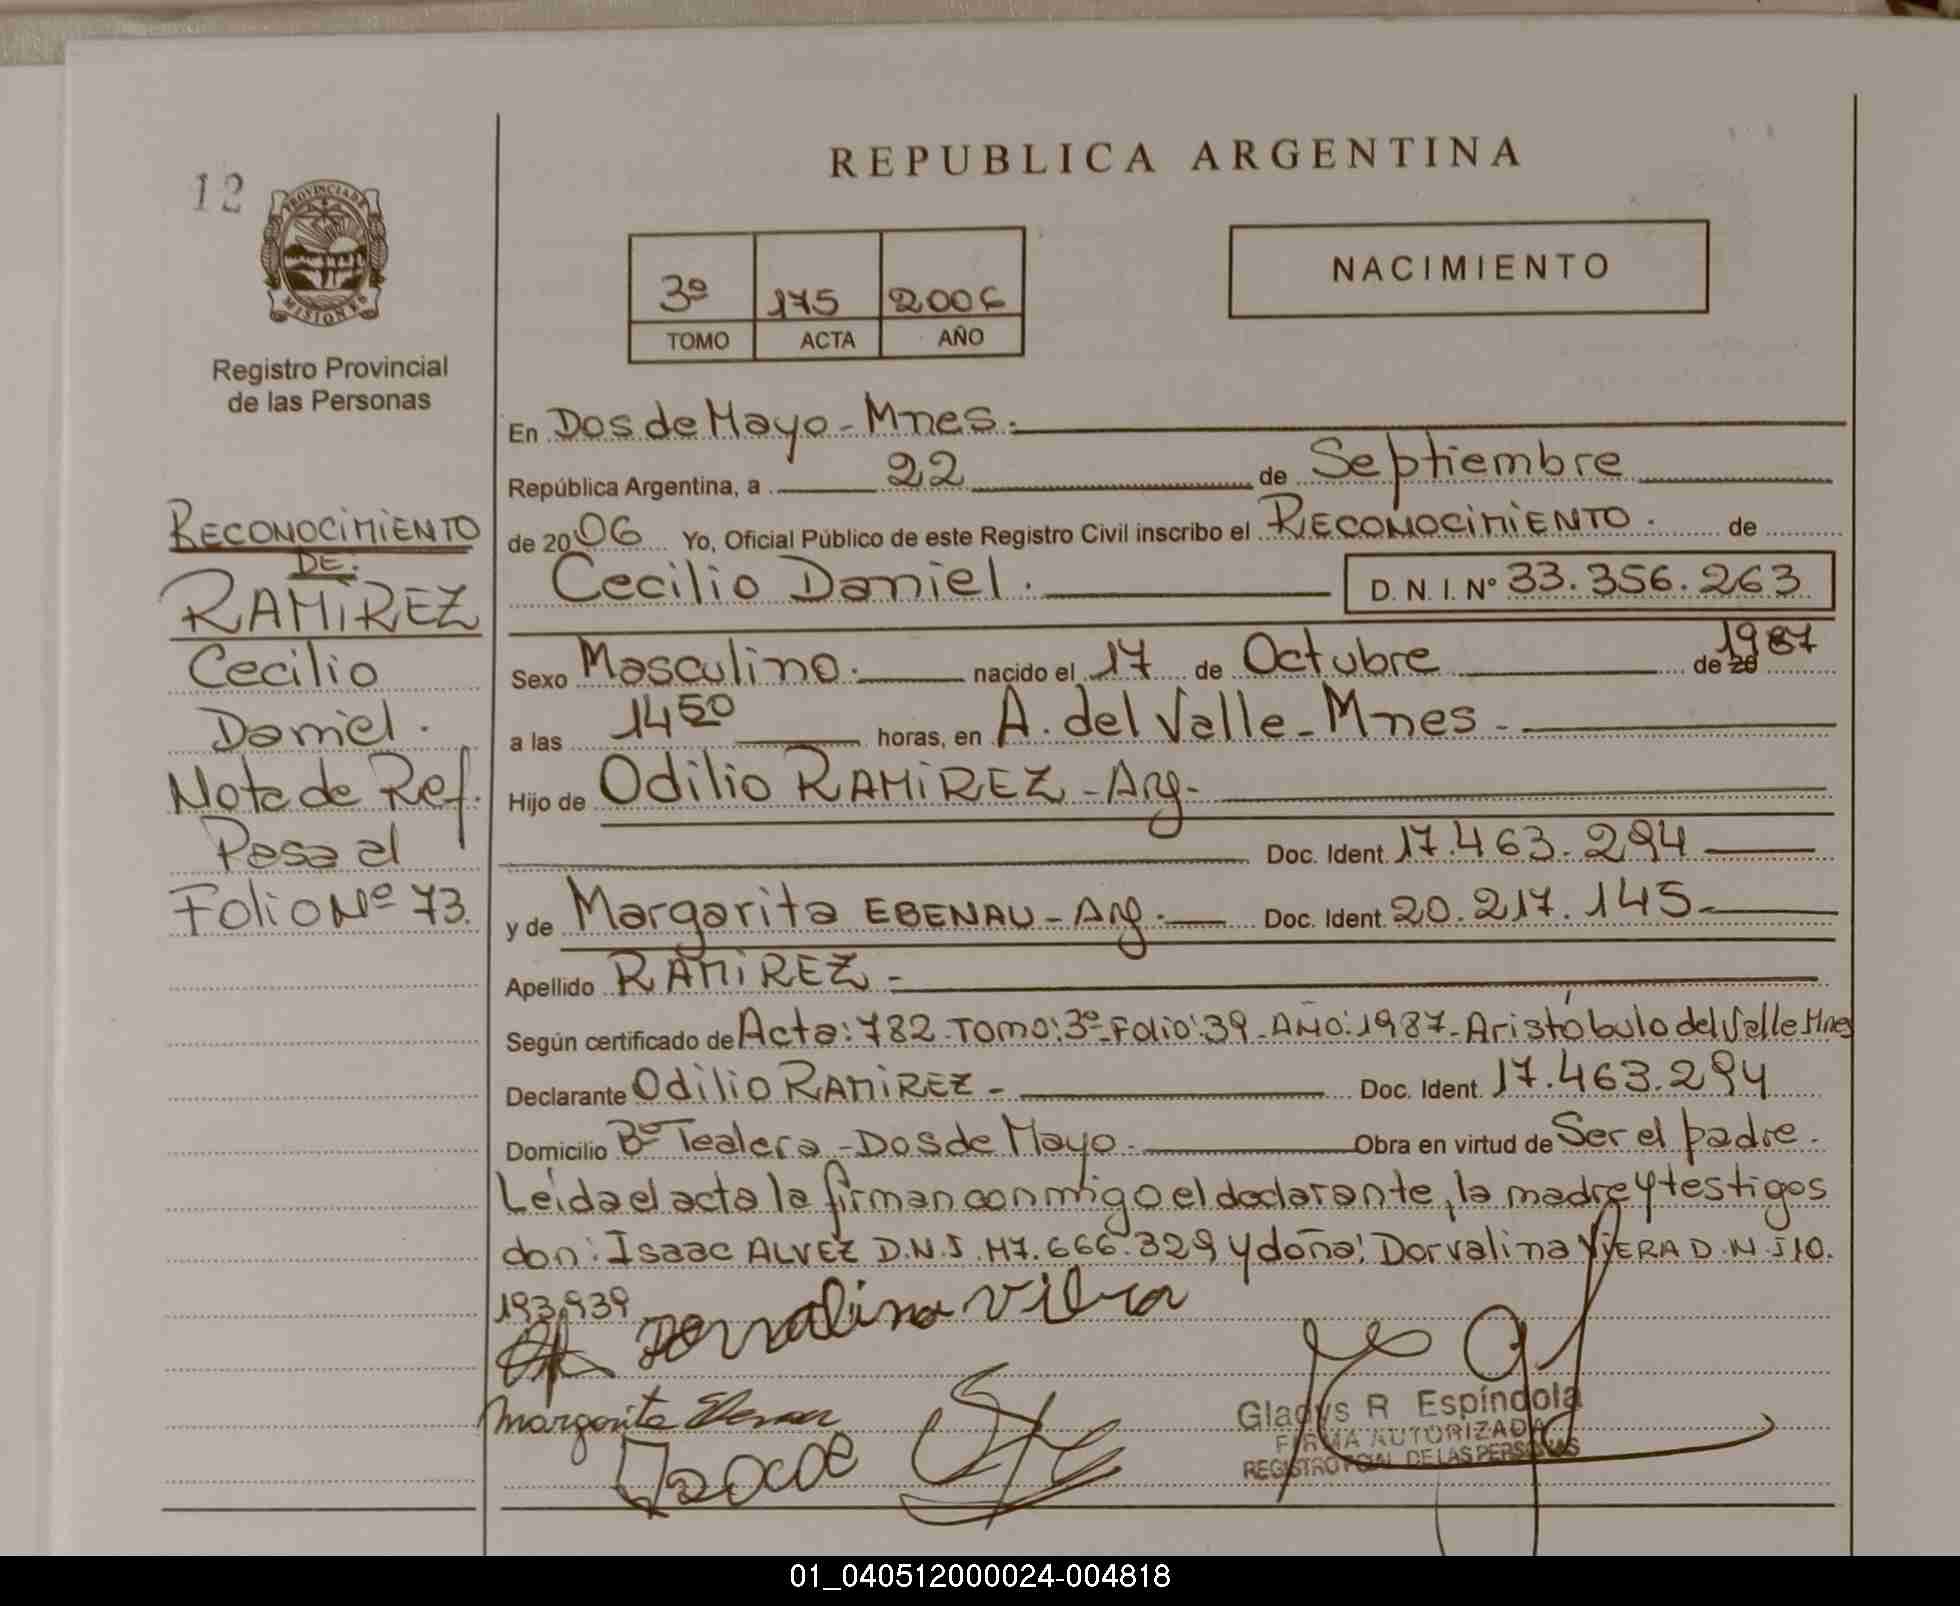 REPUBLICA ARGENTINA
12
PROVINCIA DE
MISIONES
Registro Provincial
de las Personas
3º 175 2006
TOMO ACTA AÑO
NACIMIENTO
RECONOCIMIENTO
DE:
RAMIREZ
Cecilio
Daniel.
Nota de Ref.
Pasa al
Folio Nº 73.
En Dos de Mayo - Mnes.
República Argentina, a 22 de Septiembre
de 2006 Yo, Oficial Público de este Registro Civil inscribo el RECONOCIMIENTO. de
Cecilio Daniel. D. N. I. Nº 33.356.263
Sexo Masculino. nacido el 17 de Octubre de 20 1987
a las 14 50 horas, en A. del Valle - Mnes -
Hijo de Odilio RAMIREZ - Arg -
Doc. Ident. 17.463.294
y de Margarita EBENAU - Arg. Doc. Ident. 20.217.145
Apellido RAMIREZ -
Según certificado de Acta: 782 - Tomo: 3º - Folio: 39 - AÑO: 1987 - Aristóbulo del Valle Mnes
Declarante Odilio RAMIREZ - Doc. Ident. 17.463.294
Domicilio Bº Tealera - Dos de Mayo. Obra en virtud de Ser el padre.
Leída el acta la firman conmigo el declarante, la madre y testigos
don: Isaac ALVEZ D.N.I. M7.666.329 y doña: Dorvalina VIERA D.N.I 10.
193.939
Dorvalina Viera
Margarita Ebenau
Gladys R Espíndola
FIRMA AUTORIZADA
REGISTRO PCIAL DE LAS PERSONAS
01_040512000024-004818